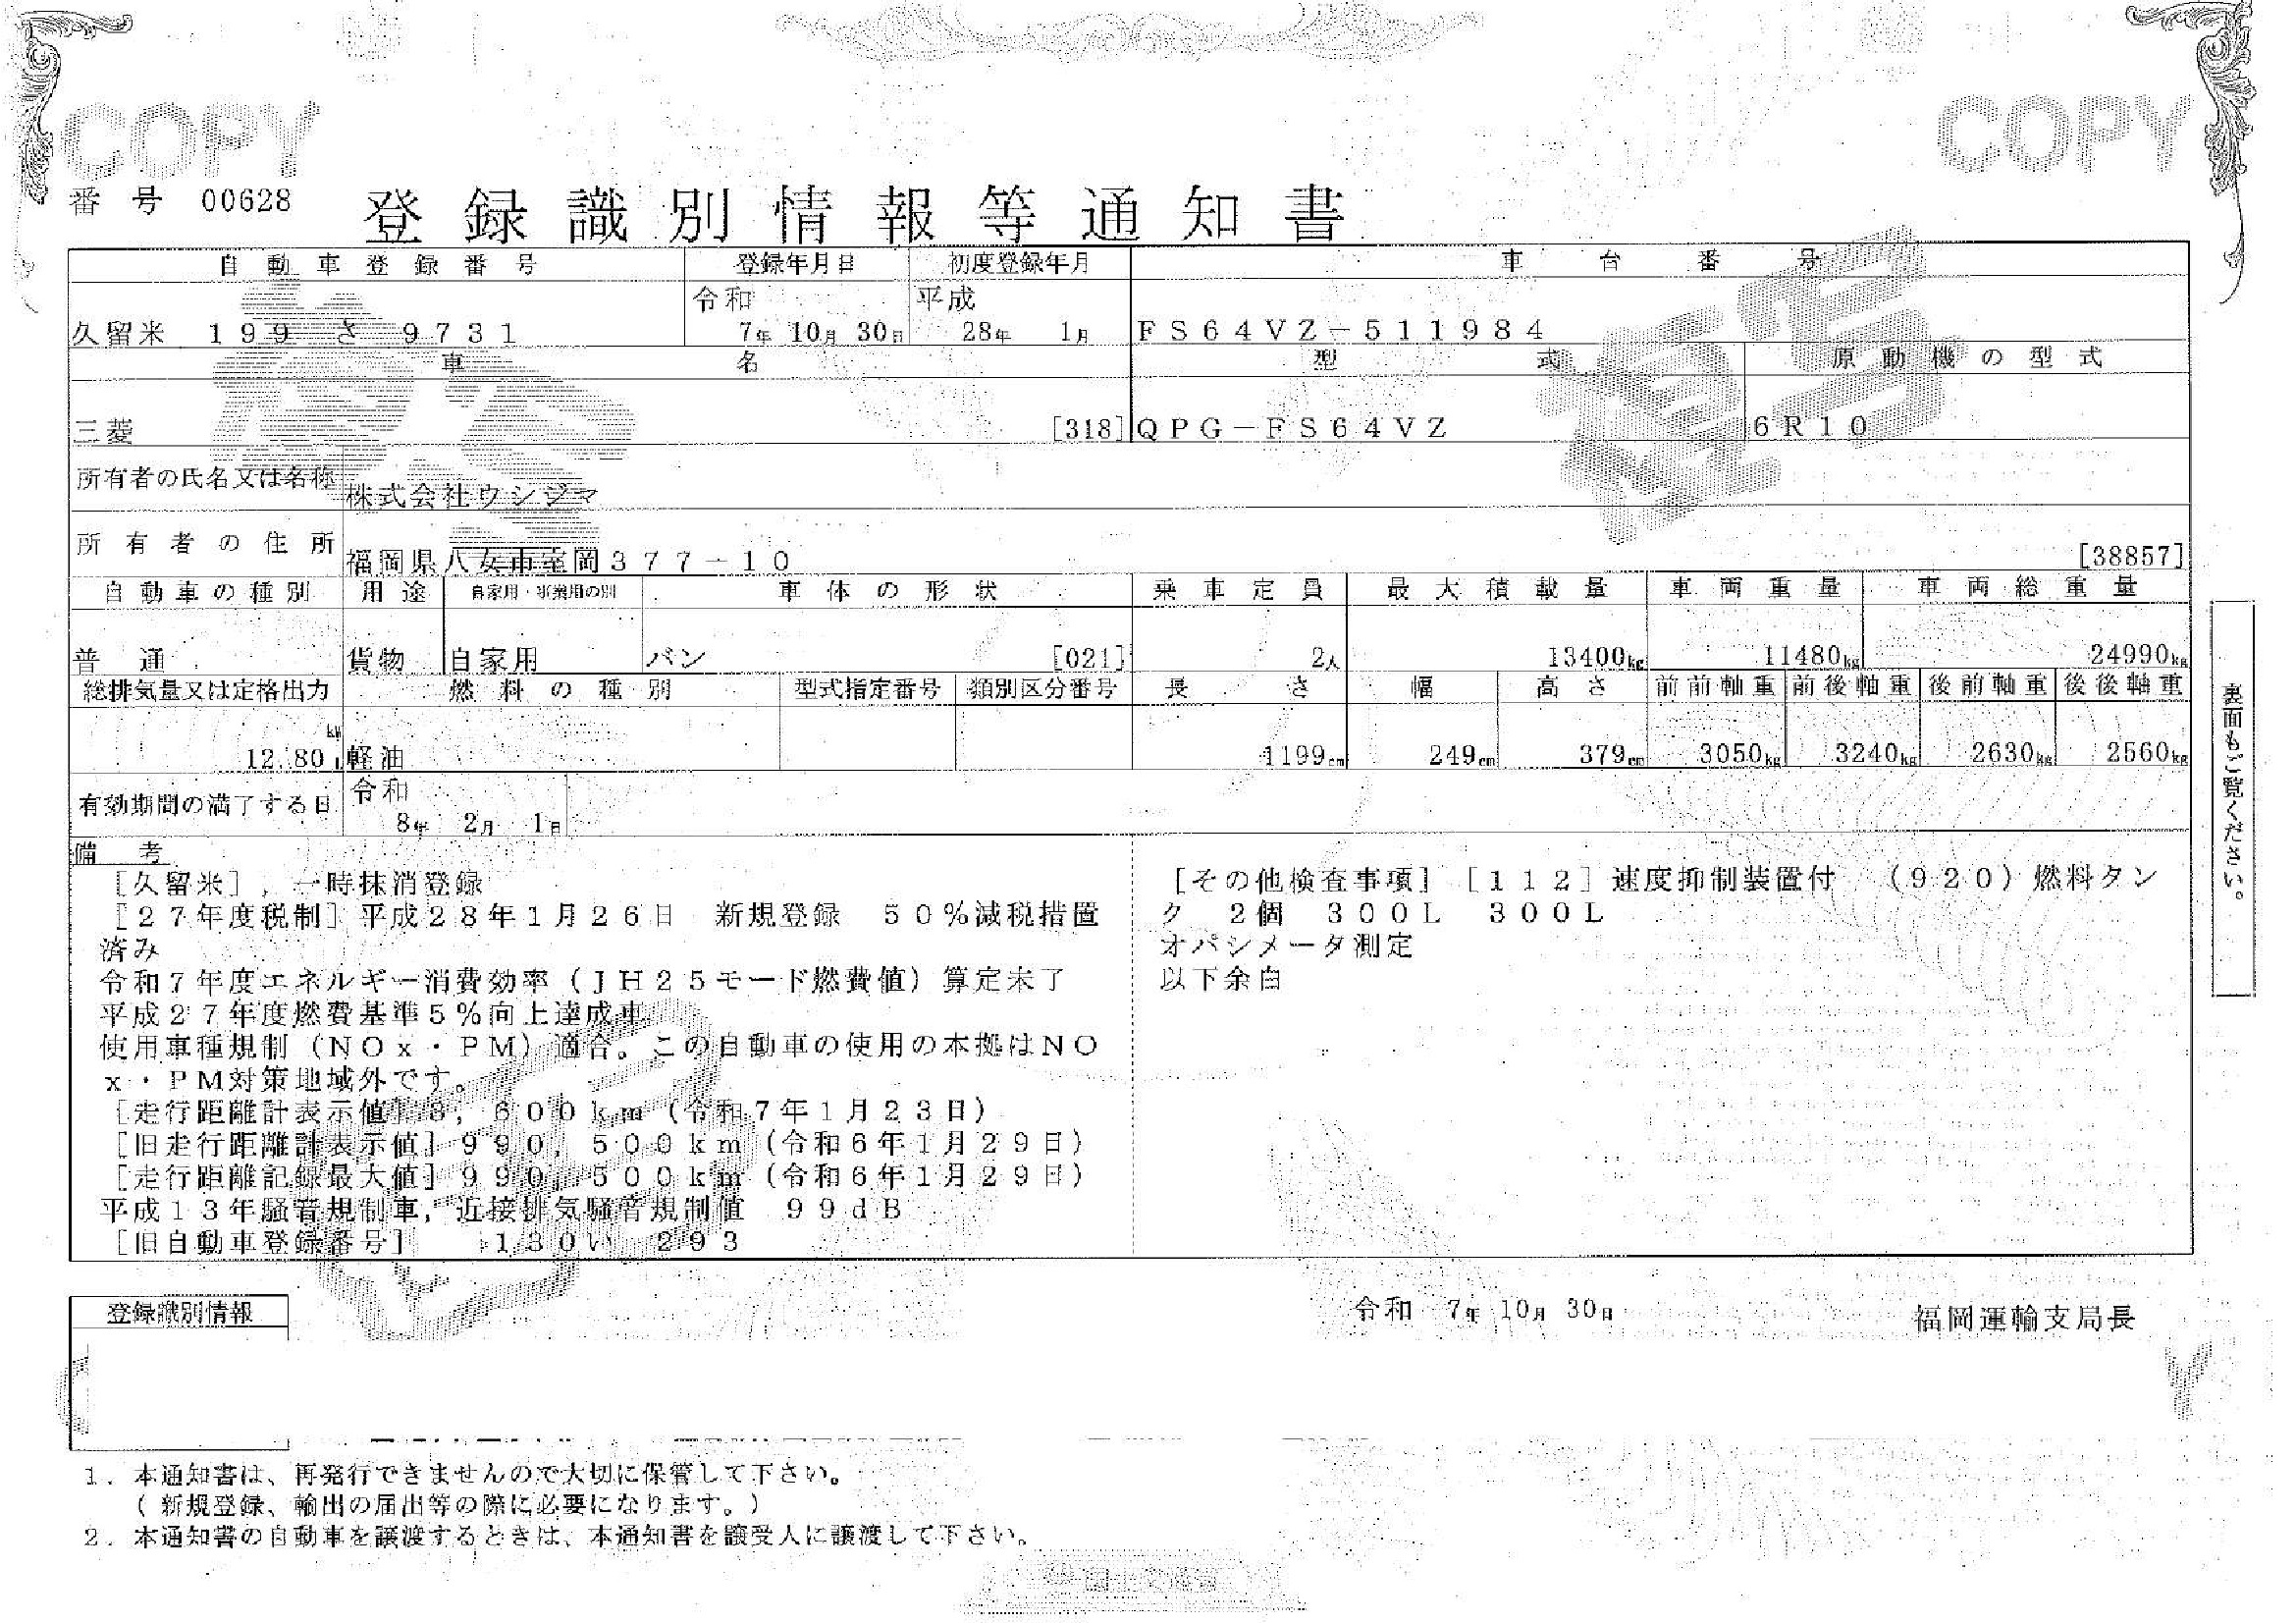 COPY
COPY
番 号 00628
登録識別情報等通知書
自動車登録番号 登録年月日 初度登録年月 車台番号
令和 平成
久留米 199 さ 9731 7年 10月 30日 28年 1月 FS64VZ-511984
車名 型式 原動機の型式
三菱 [318] QPG-FS64VZ 6R10
所有者の氏名又は名称 株式会社ウシジマ
所有者の住所 福岡県八女市室岡377-10 [38857]
自動車の種別 用途 自家用・事業用の別 車体の形状 乗車定員 最大積載量 車両重量 車両総重量
普通 貨物 自家用 バン [021] 2人 13400kg 11480kg 24990kg
総排気量又は定格出力 燃料の種別 型式指定番号 類別区分番号 長さ 幅 高さ 前前軸重 前後軸重 後前軸重 後後軸重
kW
12.80 L 軽油 1199cm 249cm 379cm 3050kg 3240kg 2630kg 2560kg
有効期間の満了する日 令和
8年 2月 1日
備考
[久留米], 一時抹消登録
[27年度税制] 平成28年1月26日 新規登録 50%減税措置
済み
令和7年度エネルギー消費効率(JH25モード燃費値)算定未了
平成27年度燃費基準5%向上達成車
使用車種規制(NOx・PM)適合。この自動車の使用の本拠はNO
x・PM対策地域外です。
[走行距離計表示値] 3,600km(令和7年1月23日)
[旧走行距離計表示値] 990,500km(令和6年1月29日)
[走行距離記録最大値] 990,500km(令和6年1月29日)
平成13年騒音規制車, 近接排気騒音規制値 99dB
[旧自動車登録番号] 130い 293
[その他検査事項] [112] 速度抑制装置付 (920) 燃料タン
ク 2個 300L 300L
オパシメータ測定
以下余白
裏面もご覧ください。
登録識別情報
令和 7年 10月 30日 福岡運輸支局長
1. 本通知書は、再発行できませんので大切に保管して下さい。
(新規登録、輸出の届出等の際に必要になります。)
2. 本通知書の自動車を譲渡するときは、本通知書を譲受人に譲渡して下さい。